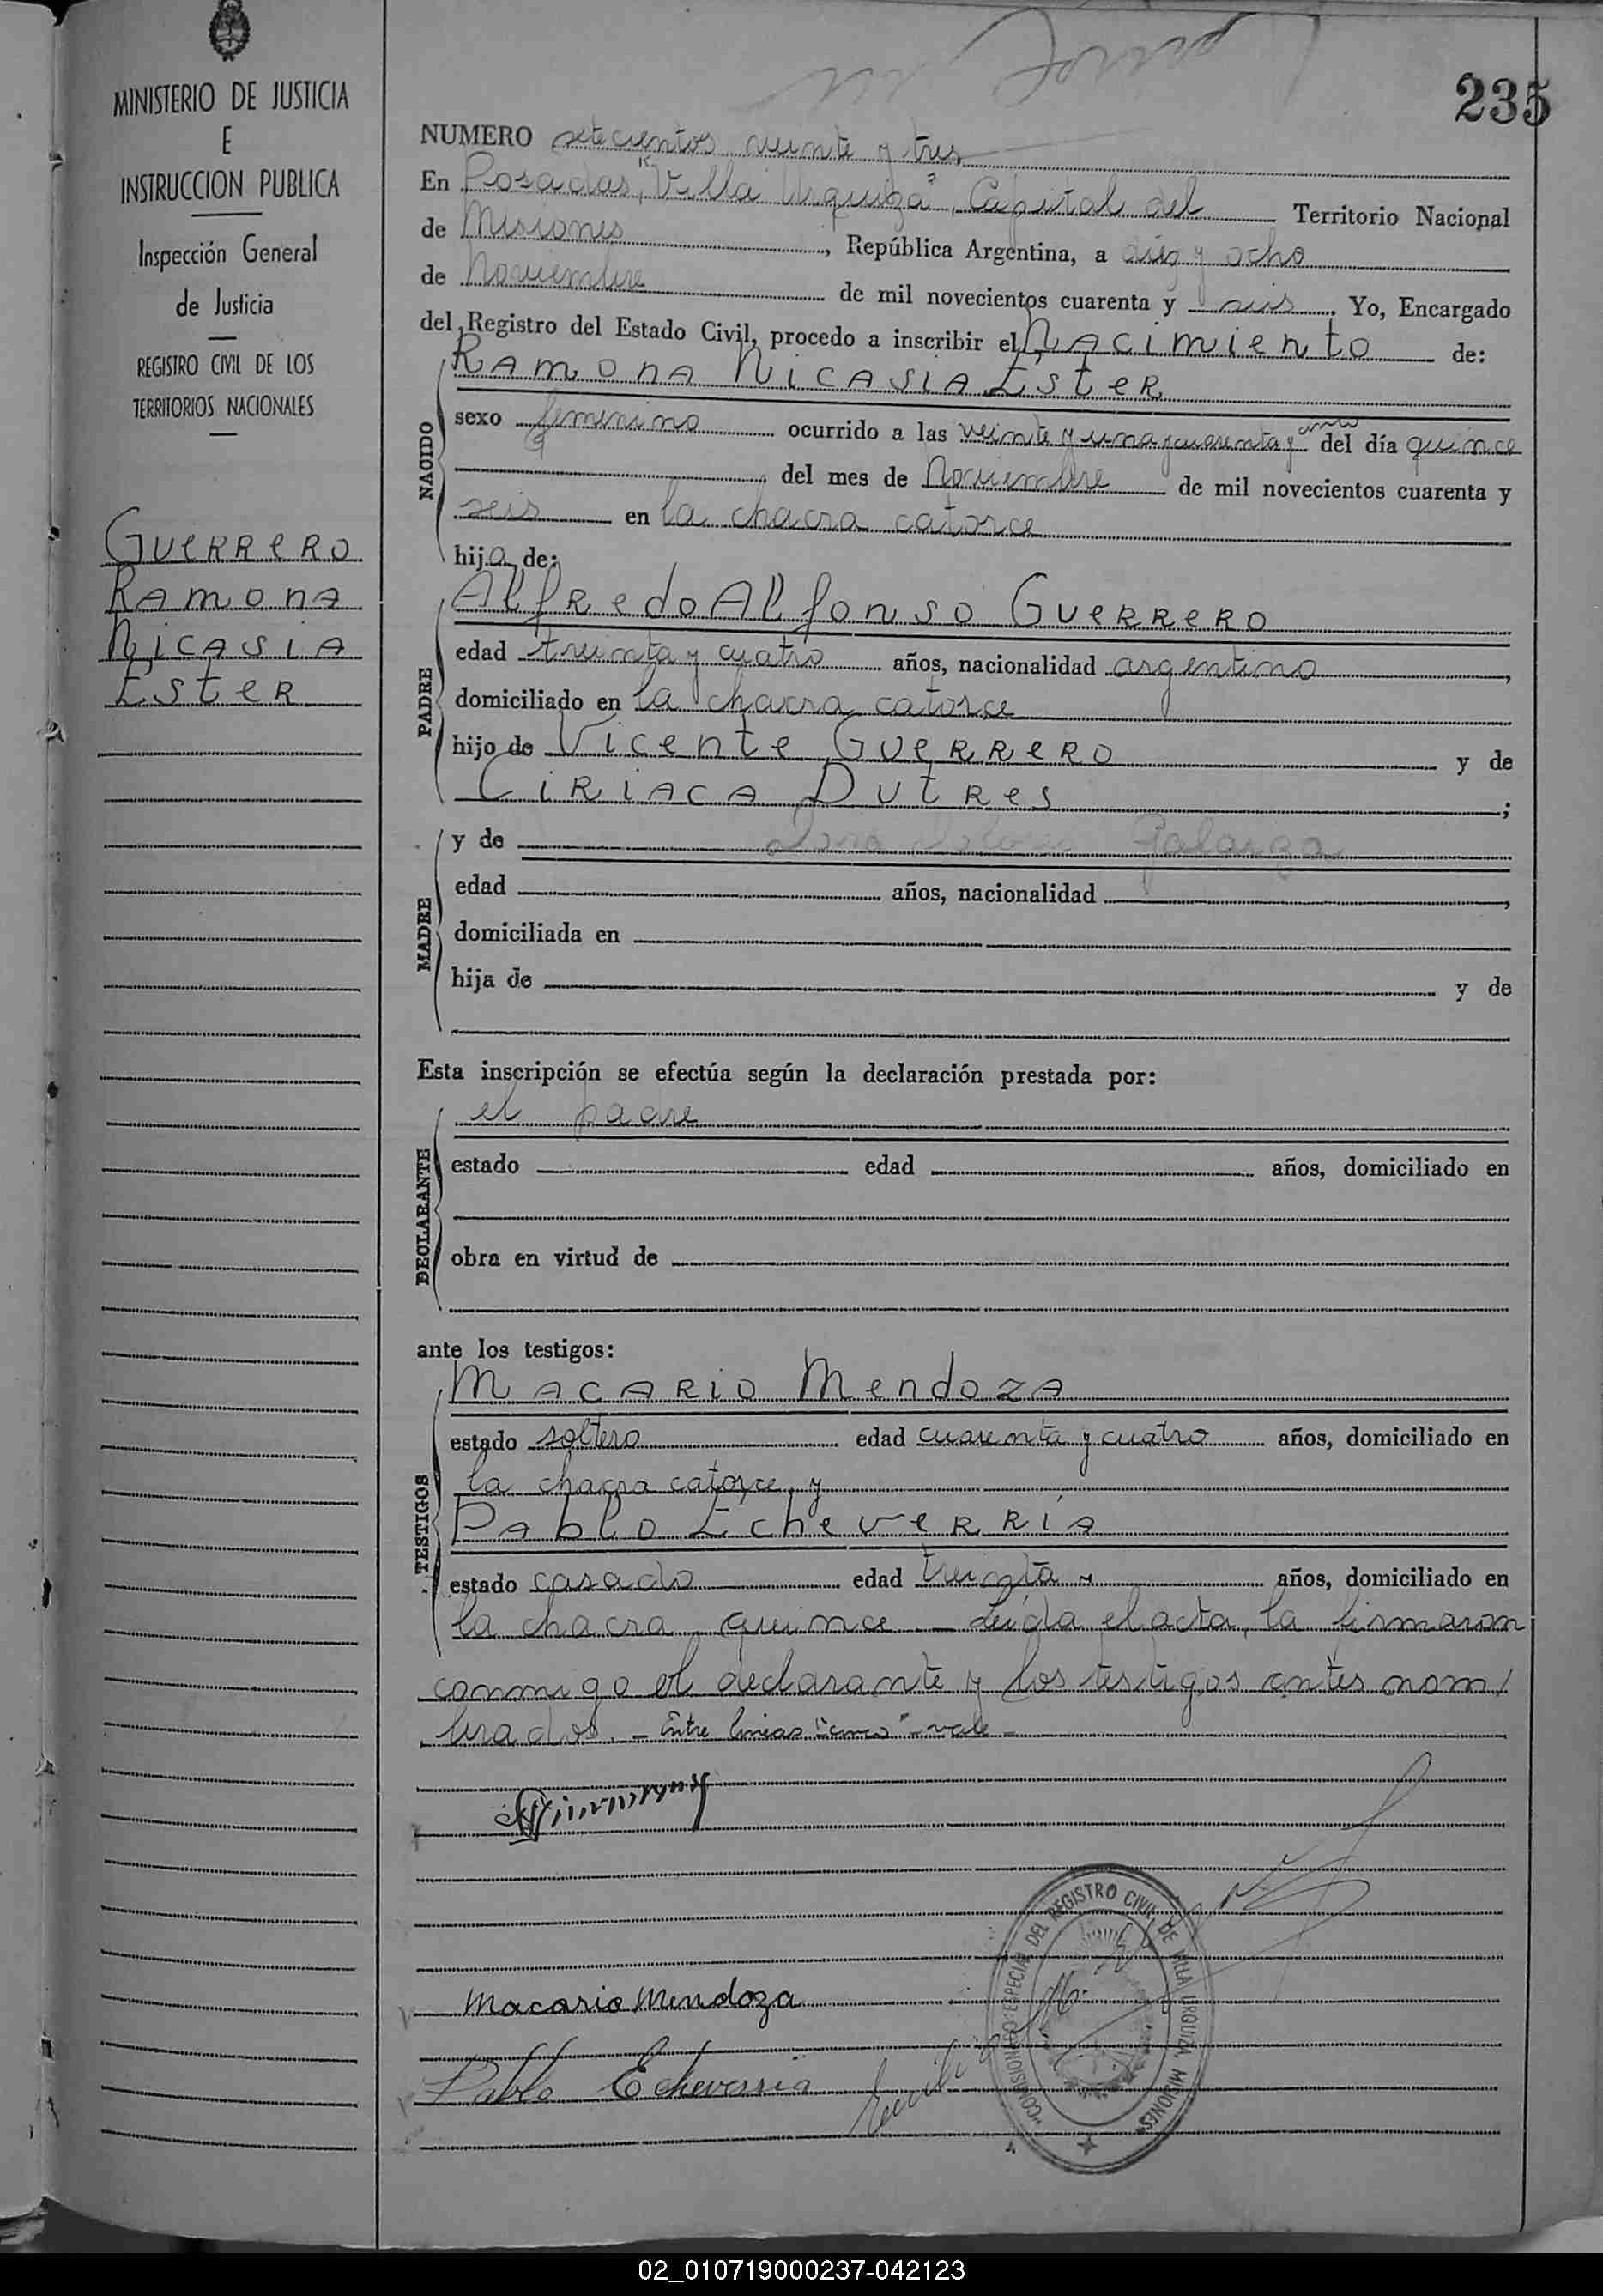 235
MINISTERIO DE JUSTICIA
E
INSTRUCCION PUBLICA
Inspección General
de Justicia
REGISTRO CIVIL DE LOS
TERRITORIOS NACIONALES
GUERRERO
RAMONA
NICASIA
ESTER
NUMERO setecientos veinte y tres
En Posadas, "Villa Urquiza", Capital del Territorio Nacional
de Misiones, República Argentina, a diez y ocho
de Noviembre de mil novecientos cuarenta y seis. Yo, Encargado
del Registro del Estado Civil, procedo a inscribir el Nacimiento de:
NACIDO
RAMONA NICASIA ESTER
sexo femenino ocurrido a las veinte y una y cuarenta y cinco del día quince
del mes de Noviembre de mil novecientos cuarenta y
seis en la chacra catorce
hija de:
PADRE
Alfredo Alfonso Guerrero
edad treinta y cuatro años, nacionalidad argentino,
domiciliado en la chacra catorce
hijo de Vicente Guerrero y de
Ciriaca Dutres;
MADRE
y de Galarza
edad años, nacionalidad,
domiciliada en
hija de y de
Esta inscripción se efectúa según la declaración prestada por:
DECLARANTE
el padre
estado edad años, domiciliado en
obra en virtud de
ante los testigos:
TESTIGOS
Macario Mendoza
estado soltero edad cuarenta y cuatro años, domiciliado en
la chacra catorce y
Pablo Echeverría
estado casado edad treinta años, domiciliado en
la chacra quince.- Leída el acta, la firmaron
conmigo el declarante y los testigos antes nom/
brados.- Entre líneas "cinco"-vale-
Macario Mendoza
Pablo Echeverria
COMISIONADO ESPECIAL DEL REGISTRO CIVIL DE VILLA URQUIZA MISIONES
02_010719000237-042123